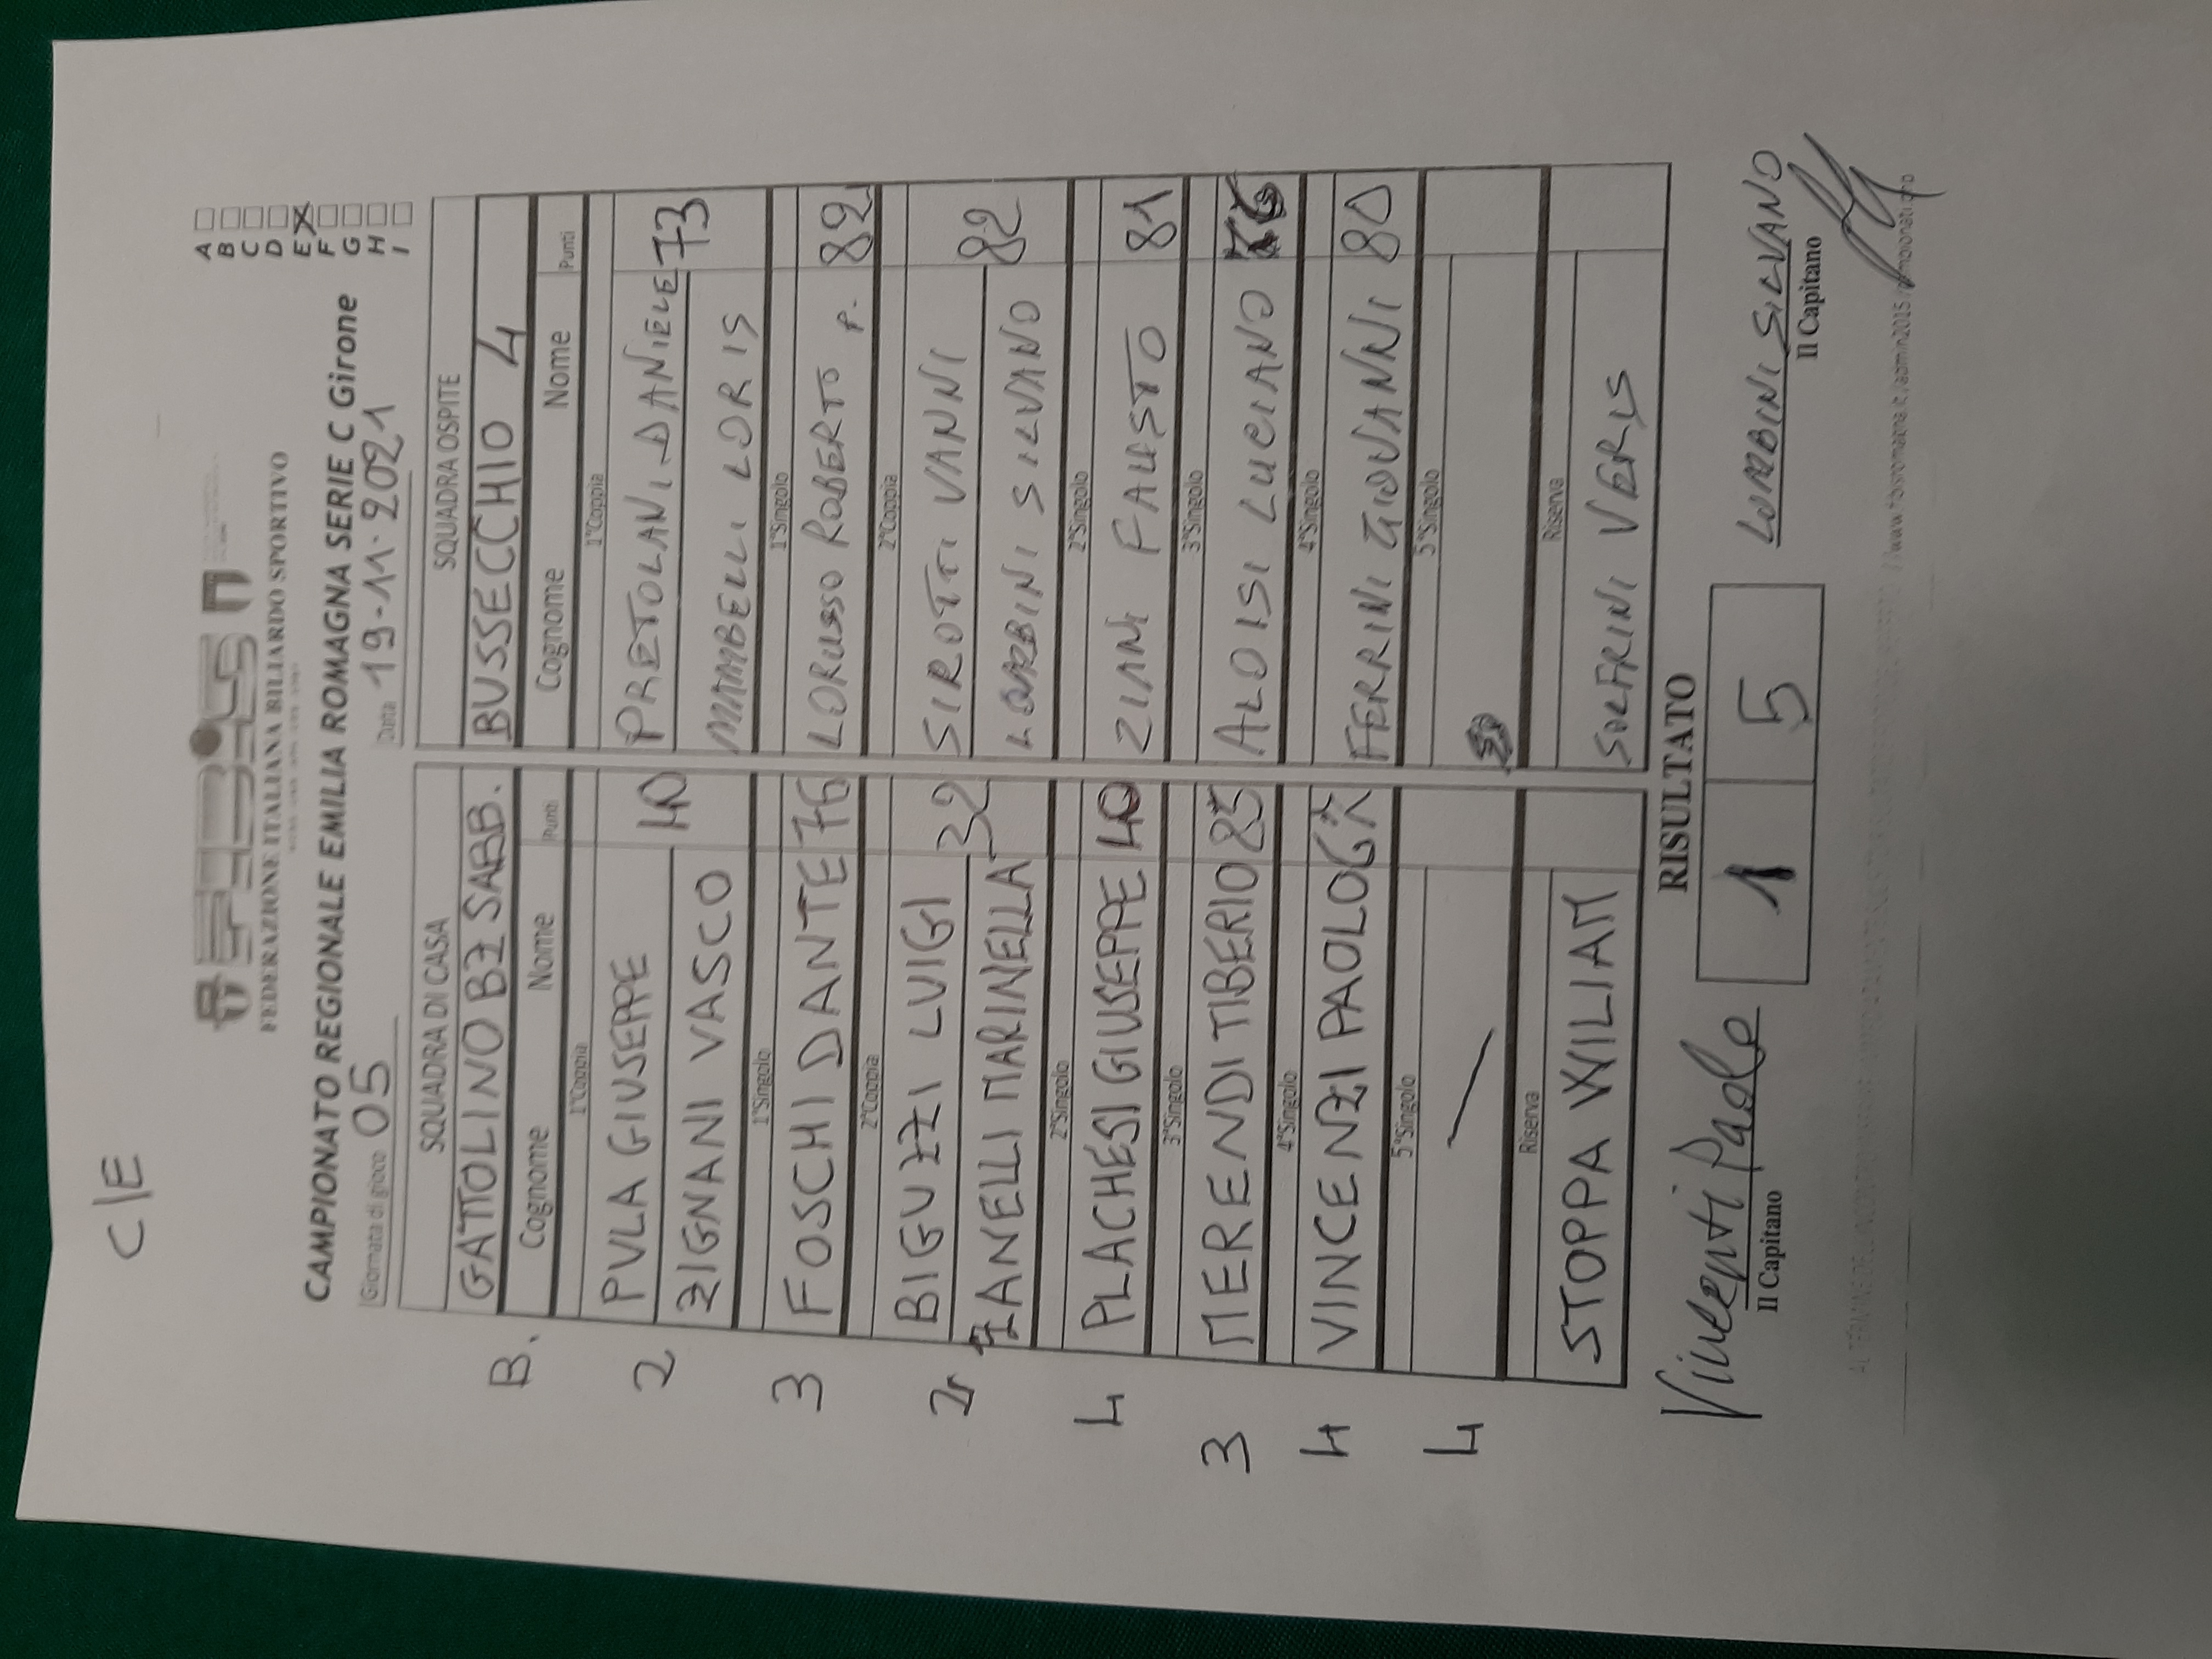 C/E
FIBiS
FEDERAZIONE ITALIANA BILIARDO SPORTIVO
CAMPIONATO REGIONALE EMILIA ROMAGNA SERIE C Girone
A
B
C
D
E X
F
G
H
I
Giornata di gioco 05
Data 19-11-2021
SQUADRA DI CASA
SQUADRA OSPITE
GATTOLINO BZ SABB.
BUSSECCHIO 4
B.
Cognome Nome Punti
Cognome Nome Punti
1°Coppia
1°Coppia
2
PULA GIUSEPPE 40
PRETOLANI DANIELE 73
ZIGNANI VASCO
MAMBELLI LORIS
1°Singolo
1°Singolo
3
FOSCHI DANTE 76
LORUSSO ROBERTO P. 82
2°Coppia
2°Coppia
2
BIGUZZI LUIGI 32
SIROTTI VANNI 82
ZANELLI MARINELLA
LOMBINI SILVANO
2°Singolo
2°Singolo
4
PLACHESI GIUSEPPE 40
ZIANI FAUSTO 81
3°Singolo
3°Singolo
3
MERENDI TIBERIO 85
ALOISI LUCIANO
4°Singolo
4°Singolo
4
VINCENZI PAOLO
FERRINI GIOVANNI 80
5°Singolo
5°Singolo
4
Riserva
Riserva
STOPPA WILIAM
SOLFRINI VERIS
RISULTATO
1 5
Vincenti Paolo
LOMBINI SILVANO
Il Capitano
Il Capitano